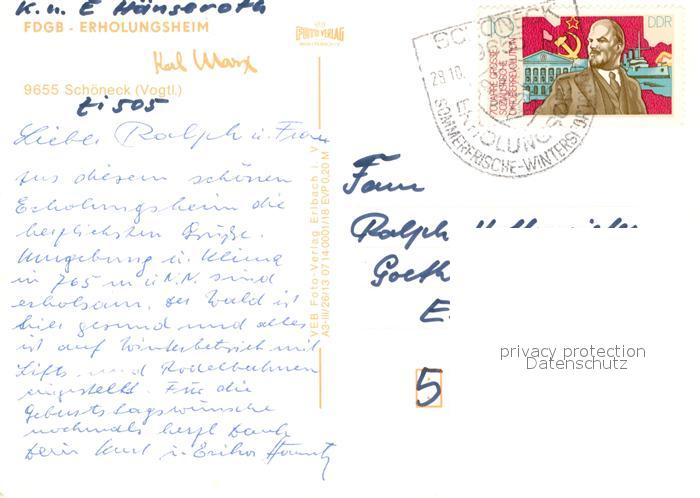 K. u. E Hänseroth
FDGB - ERHOLUNGSHEIM
Karl Marx
9655 Schöneck (Vogtl.)
Zi 505
PHOTO VERLAG
Lieber Ralph u. Frau
Aus diesem schönen
Erholungsheim die
herzlichsten Grüße.
Umgebung u. Klima
in 765 m ü. N.N. sind
erholsam, der Wald ist
hier gesund und alles
ist auf Winterbetrieb mit
Lifts und Rodelbahnen
eingestellt. Für die
Geburtstagswünsche
nochmals herzl Dank
Kurt u. Erika
VEB Foto-Verlag Erlbach i. V.
A3-III/26/13 07 14 0001/18 EVP 0,20 M
SCHÖNECK
28.10.
ERHOLUNGSORT
SOMMERFRISCHE-WINTERSPORT
10
DDR
70 JAHRE GROSSE
SOZIALISTISCHE
OKTOBERREVOLUTION
Fam
Ralph
Goeth
E
5
privacy protection
Datenschutz